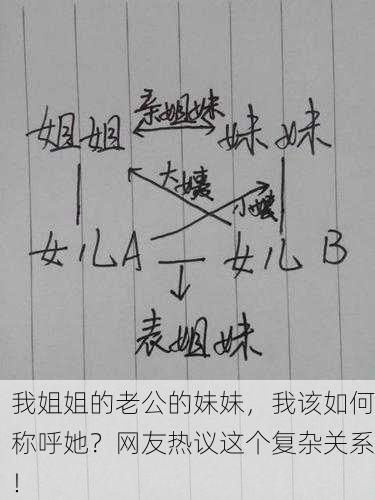 亲姐妹
姐姐 妹妹
大姨
小姨
女儿A 女儿B
表姐妹
我姐姐的老公的妹妹，我该如何
称呼她？网友热议这个复杂关系
！